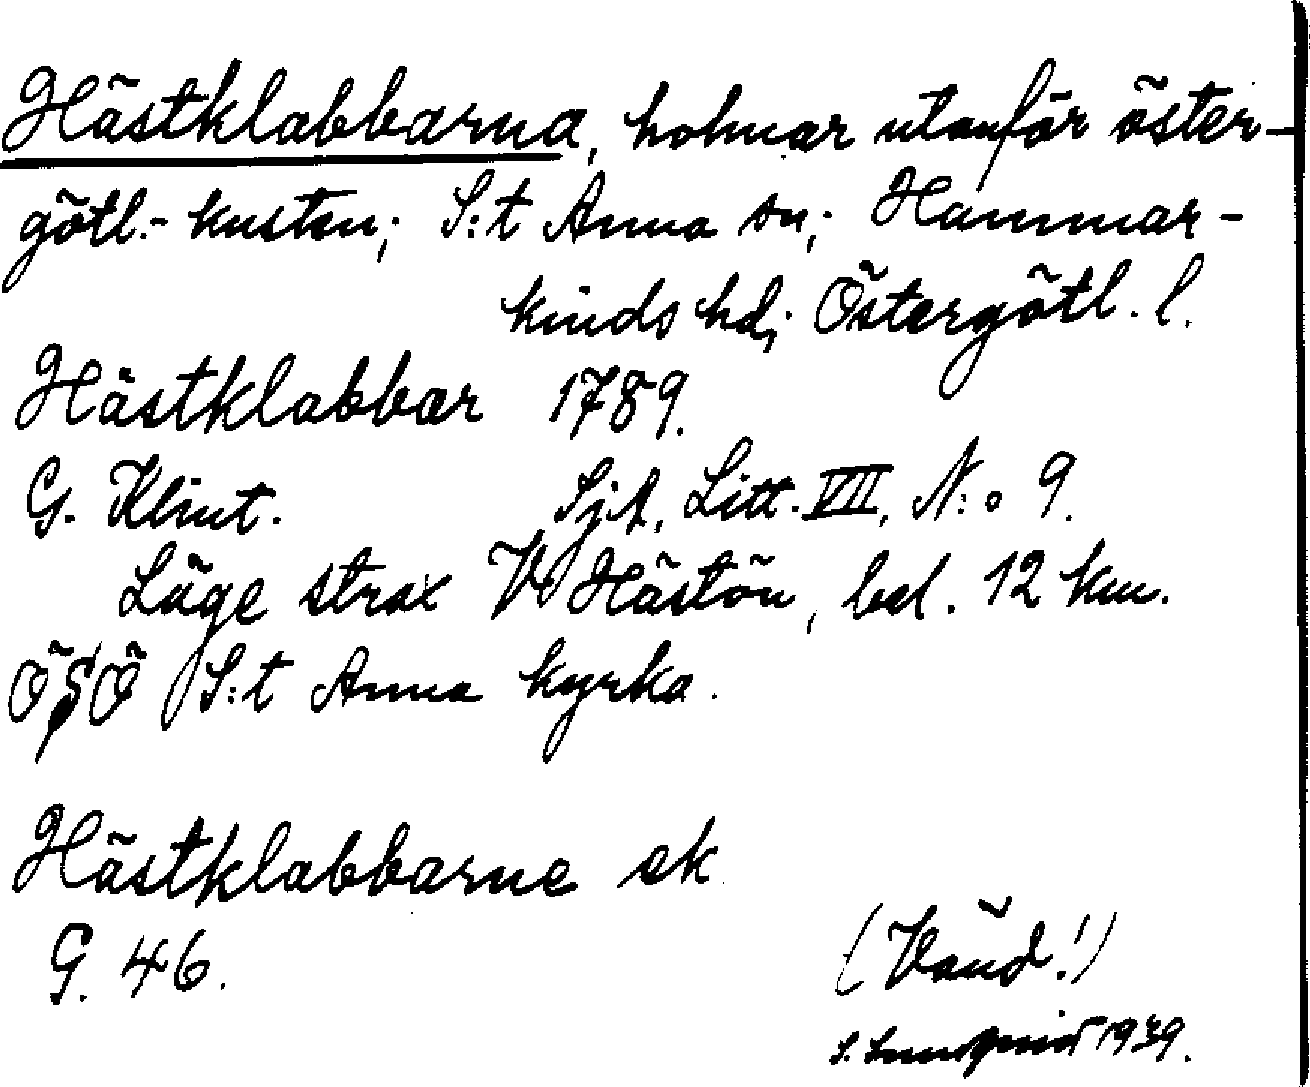 Hästklabbarna, holmar utanför öster-
götl.-kusten; S:t Anna sn; Hammar-
kinds hd; Östergötl. l.
Hästklabbar 1789.
G. Klint. Sjk, Litt. VII, N:o 9.
Läge strax V Hästön, bel. 12 km.
ÖSÖ S:t Anna kyrka.
Hästklabbarne ek
G. 46.
(Vänd!)
S. Lundqvist 1939.